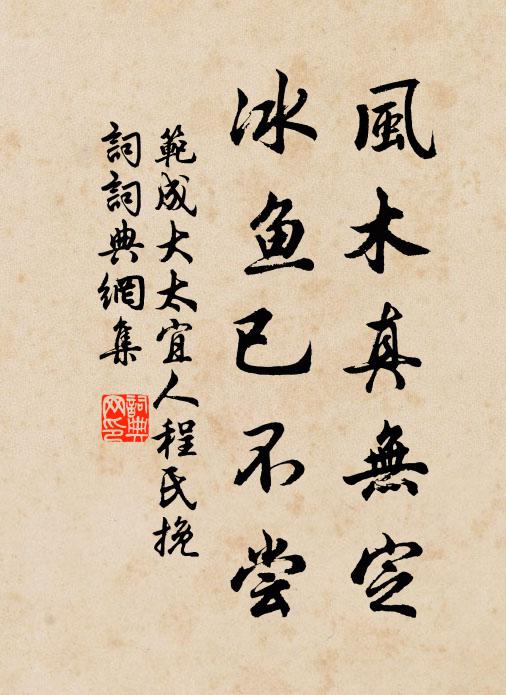 風木真無定
冰鱼已不尝
範成大太宜人程氏挽
詞詞典網集
詞典网印